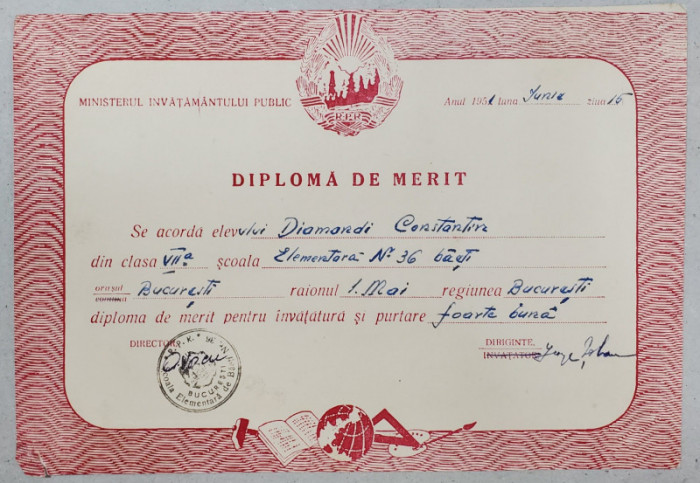 R.P.R.
MINISTERUL INVĂȚĂMÂNTULUI PUBLIC
Anul 1951 luna Iunie ziua 15
DIPLOMĂ DE MERIT
Se acordă elevului Diamandi Constantin
din clasa VIIa școala Elementară Nº 36 băeți
orașul București raionul 1. Mai regiunea București
comuna
diploma de merit pentru învățătură și purtare foarte bună
DIRECTOR,
DIRIGINTE,
INVĂȚĂTOR
Școala Elementară de Băeți
BUCUREȘTI